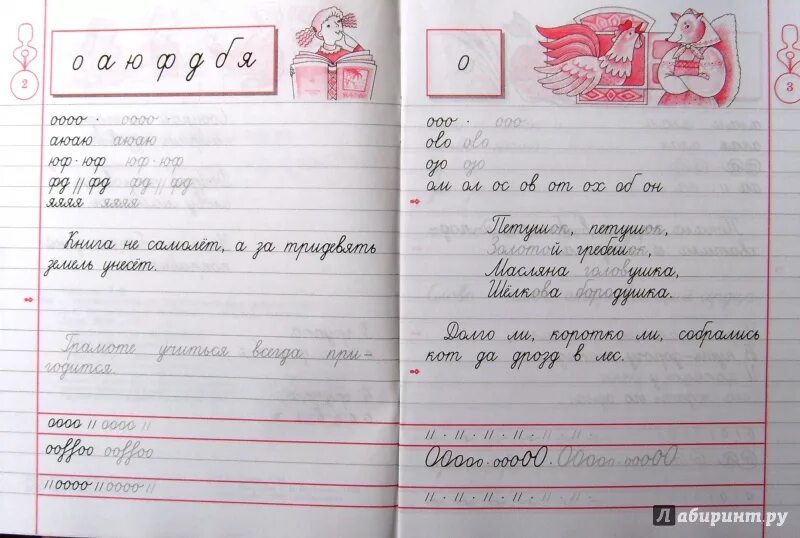 2
о а ю ф д б я
оооо · оооо ·
аюаю аюаю
юф · юф юф · юф
фд || фд фд || фд
яяяя яяяя
Книга не самолёт, а за тридевять
земель унесёт.
Грамоте учиться всегда при-
годится.
оооо || оооо ||
ооffоо ооffоо
|| оооо || оооо ||
3
о
ооо · ооо ·
ово ово
оэо оэо
ом ол ос ов от ох об он
Петушок, петушок,
Золотой гребешок,
Масляна головушка,
Шёлкова бородушка.
Долго ли, коротко ли, собрались
кот да дрозд в лес.
|| · || · || · || · || ·
ООооо·оооОО·ООооо·оооОО
|| · || · || · || · || ·
Лабиринт.ру